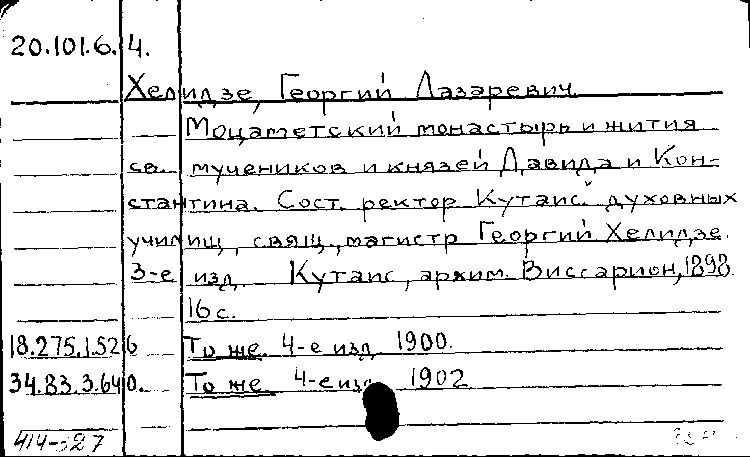 20.101.6.4.
Хелидзе, Георгий Лазаревич
Моцаметский монастырь и жития
св. мучеников и князей Давида и Кон-
стантина. Сост. ректор Кутаис. духовных
училищ, свящ., магистр Георгий Хелидзе.
3-е изд. Кутаис, архим. Виссарион, 1898.
16 с.
18.275.1.526 То же. 4-е изд. 1900.
34.83.3.640. То же. 4-е изд. 1902
414-527